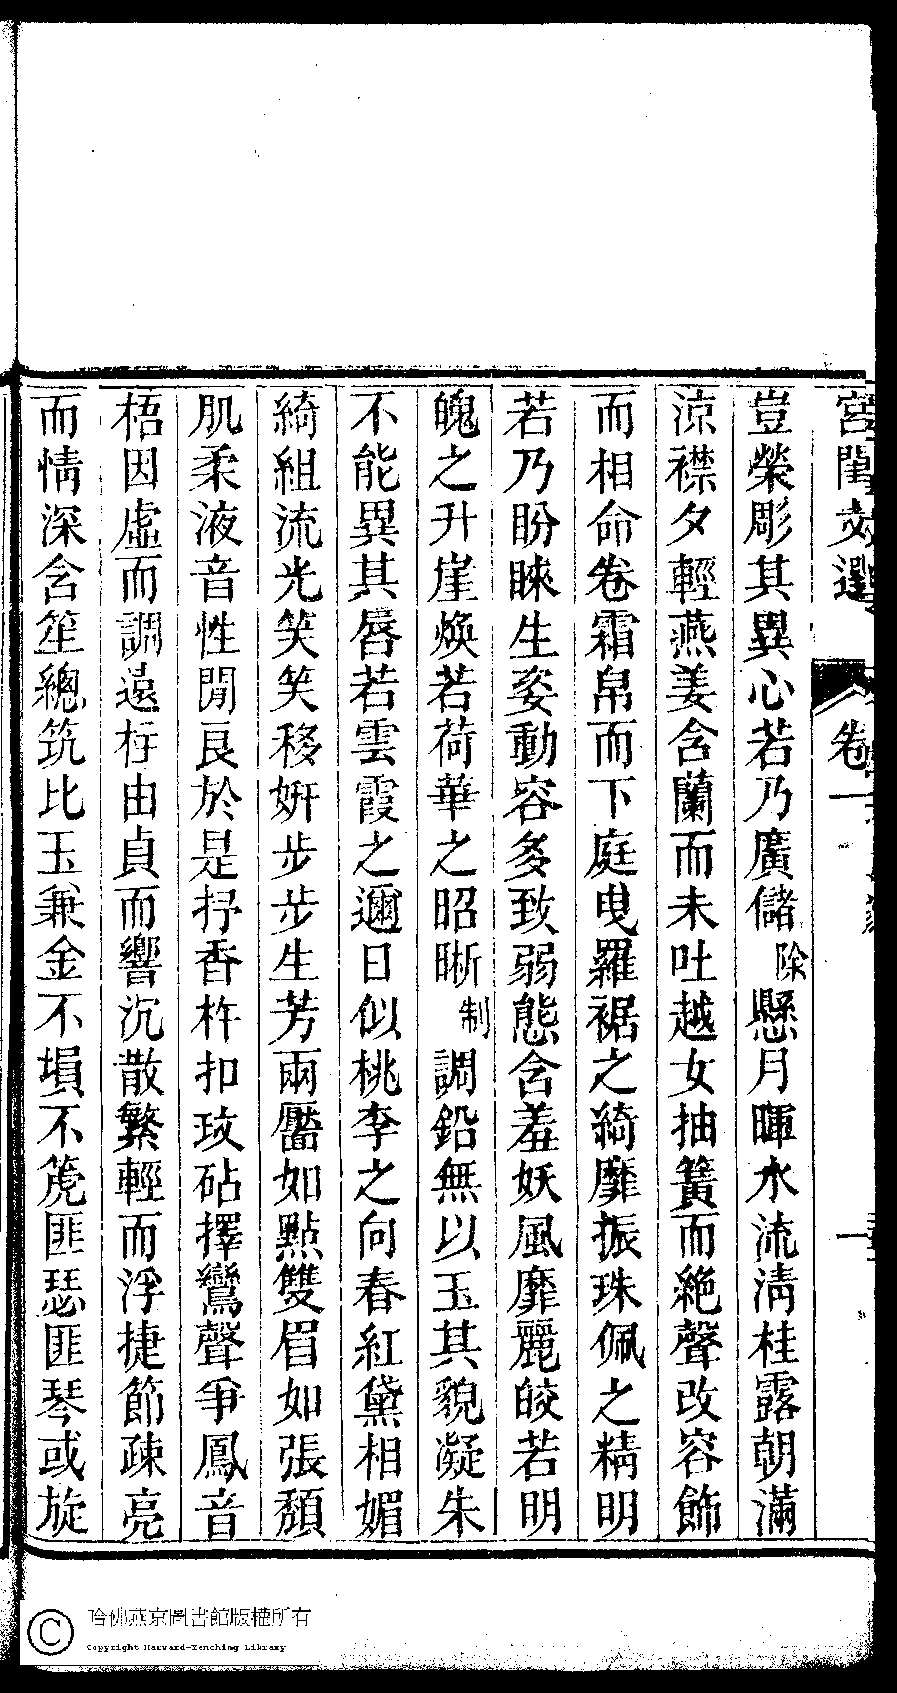 宮閨文選 卷一 一
豈榮彫其異心若乃廣儲除懸月暉水流淸桂露朝滿
涼襟夕輕燕姜含蘭而未吐越女抽簧而絶聲改容飾
而相命卷霜帛而下庭曳羅裾之綺靡振珠佩之精明
若乃盼睞生姿動容多致弱態含羞妖風靡麗皎若明
魄之升崖煥若荷華之昭晰制調鉛無以玉其貌凝朱
不能異其唇若雲霞之邇日似桃李之向春紅黛相媚
綺組流光笑笑移姸步步生芳兩靨如點雙眉如張頹
肌柔液音性閒良於是抒香杵扣玫砧擇鸞聲爭鳳音
梧因虛而調遠柕由貞而響沉散繁輕而浮捷節疎亮
而情深含笙總筑比玉兼金不塤不篪匪瑟匪琴或旋
哈佛燕京圖書館版權所有
Copyright Harvard-Yenching Library